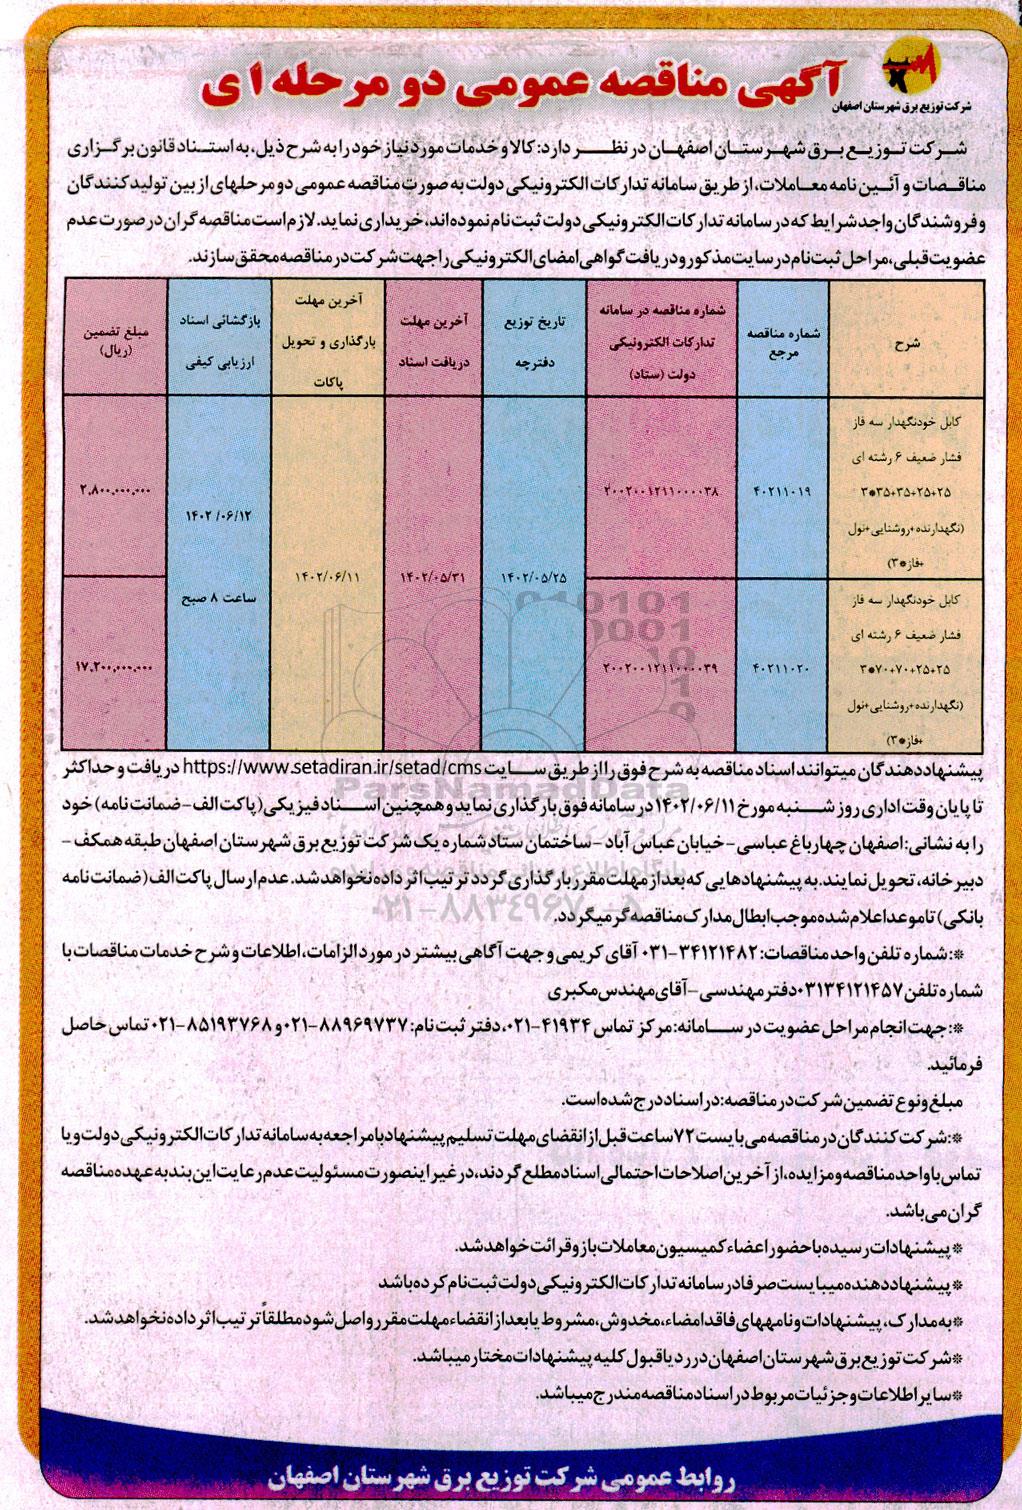 آگهی مناقصه عمومی دو مرحله ای
شرکت توزیع برق شهرستان اصفهان
شرکت توزیع برق شهرستان اصفهان در نظر دارد: کالا و خدمات مورد نیاز خود را به شرح ذیل، به استناد قانون برگزاری
مناقصات و آئین نامه معاملات، از طریق سامانه تدارکات الکترونیکی دولت به صورت مناقصه عمومی دو مرحلهای از بین تولید کنندگان
و فروشندگان واجد شرایط که در سامانه تدارکات الکترونیکی دولت ثبت نام نموده اند، خریداری نماید. لازم است مناقصه گران در صورت عدم
عضویت قبلی، مراحل ثبت نام در سایت مذکور و دریافت گواهی امضای الکترونیکی را جهت شرکت در مناقصه محقق سازند.
شرح
شماره مناقصه مرجع
شماره مناقصه در سامانه تدارکات الکترونیکی دولت (ستاد)
تاریخ توزیع دفترچه
آخرین مهلت دریافت اسناد
آخرین مهلت بارگذاری و تحویل پاکات
بازگشائی اسناد ارزیابی کیفی
مبلغ تضمین (ریال)
کابل خودنگهدار سه فاز
فشار ضعیف ۶ رشته ای
۳*۳۵+۳۵+۲۵+۲۵
(نگهدارنده+روشنایی+نول
+فاز*۳)
۴۰۲۱۱۰۱۹
۲۰۰۲۰۰۱۲۱۱۰۰۰۰۳۸
۱۴۰۲/۰۵/۲۵
۱۴۰۲/۰۵/۳۱
۱۴۰۲/۰۶/۱۱
۱۴۰۲/۰۶/۱۲
ساعت ۸ صبح
۲,۸۰۰,۰۰۰,۰۰۰
کابل خودنگهدار سه فاز
فشار ضعیف ۶ رشته ای
۳*۷۰+۷۰+۲۵+۲۵
(نگهدارنده+روشنایی+نول
+فاز*۳)
۴۰۲۱۱۰۲۰
۲۰۰۲۰۰۱۲۱۱۰۰۰۰۳۹
۱۷,۲۰۰,۰۰۰,۰۰۰
پیشنهاد دهندگان میتوانند اسناد مناقصه به شرح فوق را از طریق سایت https://www.setadiran.ir/setad/cms دریافت و حداکثر
تا پایان وقت اداری روز شنبه مورخ ۱۴۰۲/۰۶/۱۱ در سامانه فوق بارگذاری نماید و همچنین اسناد فیزیکی (پاکت الف- ضمانت نامه) خود
را به نشانی: اصفهان چهارباغ عباسی - خیابان عباس آباد - ساختمان ستاد شماره یک شرکت توزیع برق شهرستان اصفهان طبقه همکف -
دبیرخانه، تحویل نمایند. به پیشنهادهایی که بعد از مهلت مقرر بارگذاری گردد ترتیب اثر داده نخواهد شد. عدم ارسال پاکت الف (ضمانت نامه
بانکی) تا موعد اعلام شده موجب ابطال مدارک مناقصه گر میگردد.
*: شماره تلفن واحد مناقصات: ۳۴۱۲۱۴۸۲-۰۳۱ آقای کریمی و جهت آگاهی بیشتر در مورد الزامات، اطلاعات و شرح خدمات مناقصات با
شماره تلفن ۰۳۱۳۴۱۲۱۴۵۷ دفتر مهندسی - آقای مهندس مکبری
*: جهت انجام مراحل عضویت در سامانه: مرکز تماس ۴۱۹۳۴-۰۲۱، دفتر ثبت نام: ۸۸۹۶۹۷۳۷-۰۲۱ و ۸۵۱۹۳۷۶۸-۰۲۱ تماس حاصل
فرمائید.
مبلغ و نوع تضمین شرکت در مناقصه: در اسناد درج شده است.
*: شرکت کنندگان در مناقصه می بایست ۷۲ ساعت قبل از انقضای مهلت تسلیم پیشنهاد با مراجعه به سامانه تدارکات الکترونیکی دولت و یا
تماس با واحد مناقصه و مزایده، از آخرین اصلاحات احتمالی اسناد مطلع گردند، در غیر اینصورت مسئولیت عدم رعایت این بند به عهده مناقصه
گران می باشد.
* پیشنهادات رسیده با حضور اعضاء کمیسیون معاملات باز و قرائت خواهد شد.
* پیشنهاد دهنده میبایست صرفا در سامانه تدارکات الکترونیکی دولت ثبت نام کرده باشد
* به مدارک، پیشنهادات و نامههای فاقد امضاء، مخدوش، مشروط یا بعد از انقضاء مهلت مقرر واصل شود مطلقاً ترتیب اثر داده نخواهد شد.
* شرکت توزیع برق شهرستان اصفهان در رد یا قبول کلیه پیشنهادات مختار میباشد.
* سایر اطلاعات و جزئیات مربوط در اسناد مناقصه مندرج میباشد.
روابط عمومی شرکت توزیع برق شهرستان اصفهان
ParsNamadData
۰۲۱-۸۸۳۴۹۶۷۰-۵